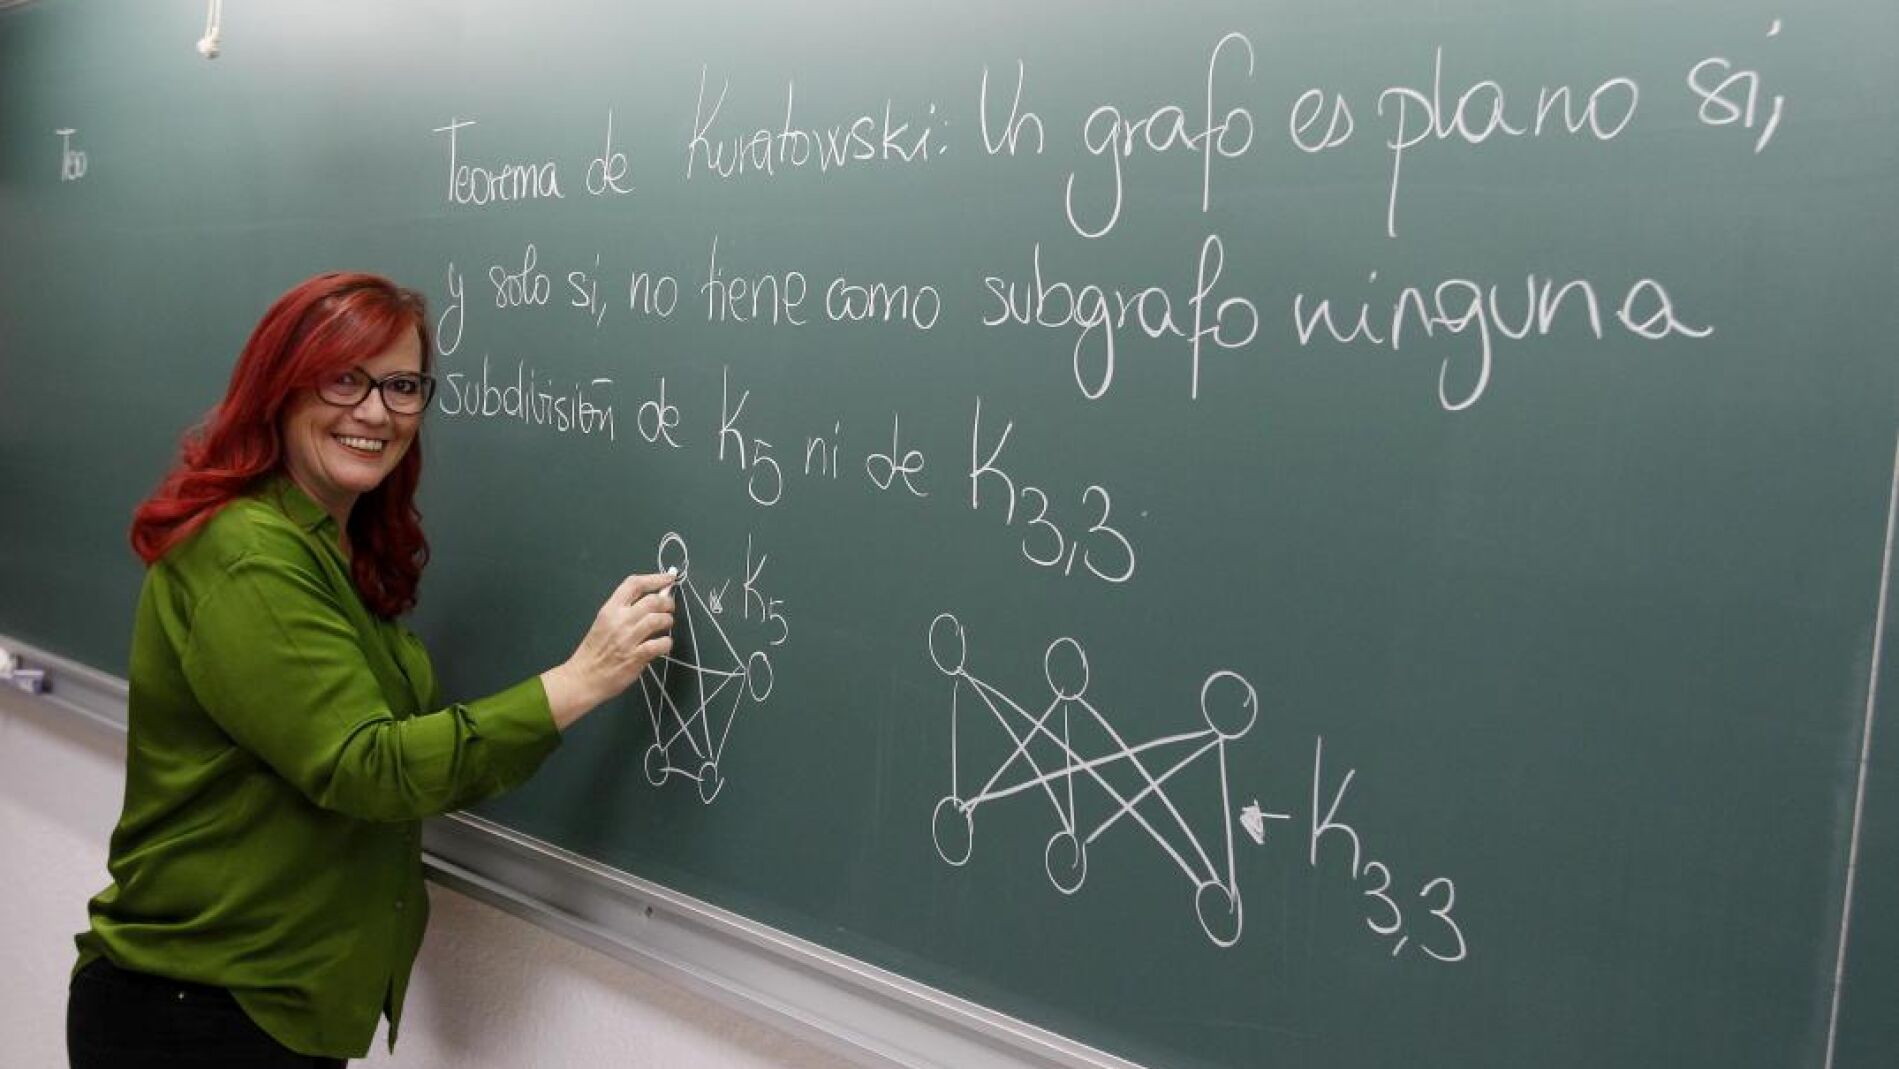 Teo
Teorema de Kuratowski: Un grafo es plano si,
y solo si, no tiene como subgrafo ninguna
subdivisión de K5 ni de K3,3.
K5
K3,3